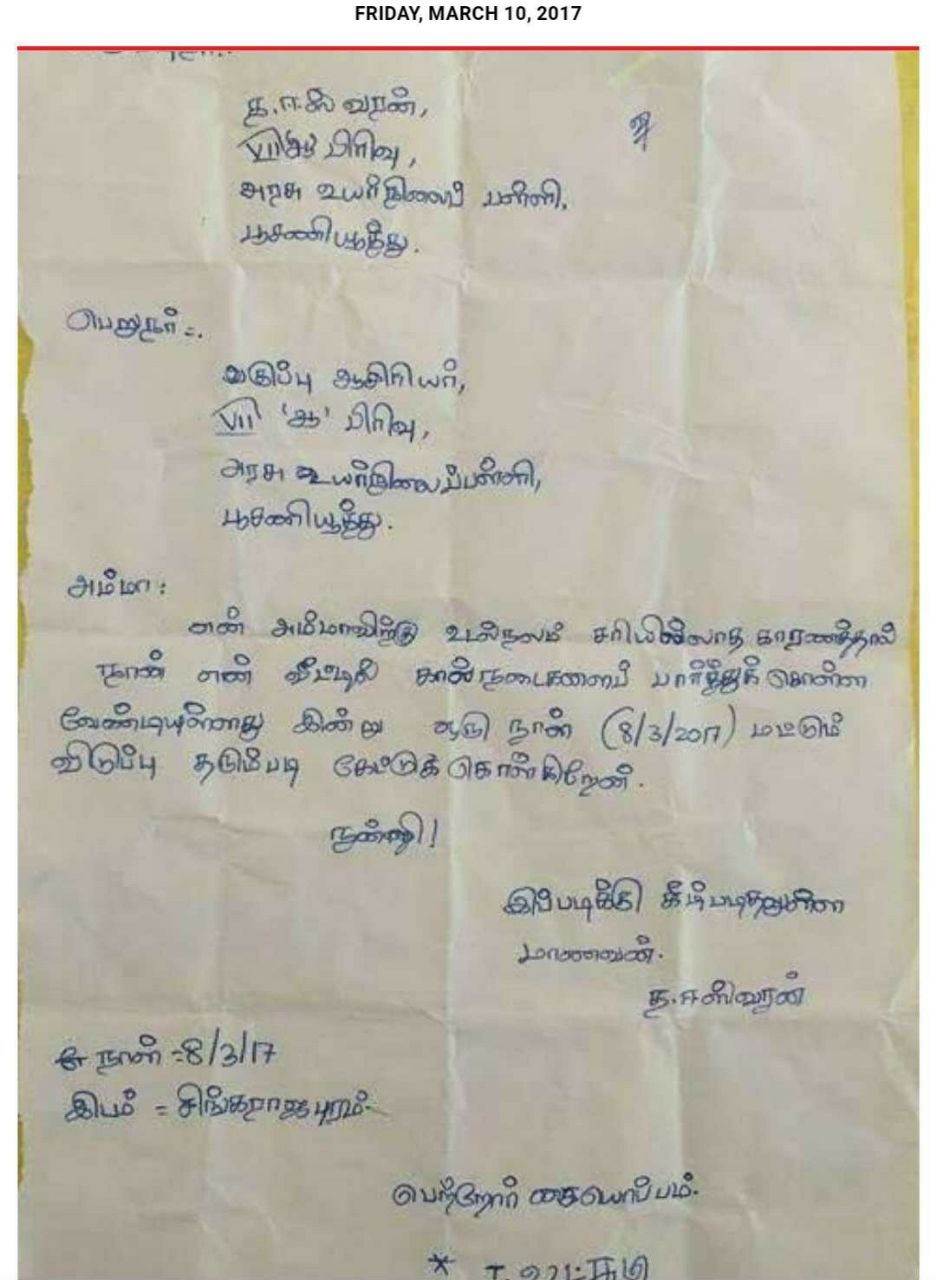 FRIDAY, MARCH 10, 2017
த.ஈஸ்வரன்,
VII ஆ பிரிவு,
அரசு உயர்நிலைப் பள்ளி,
பூசணியூத்து.
பெறுநர்:-
வகுப்பு ஆசிரியர்,
VII 'ஆ' பிரிவு,
அரசு உயர்நிலைப்பள்ளி,
பூசணியூத்து.
அம்மா:
என் அம்மாவிற்கு உடல்நலம் சரியில்லாத காரணத்தால்
நான் என் வீட்டில் கால்நடைகளைப் பார்த்துக் கொள்ள
வேண்டியுள்ளது இன்று ஒரு நாள் (8/3/2017) மட்டும்
விடுப்பு தரும்படி கேட்டுக் கொள்கிறேன்.
நன்றி!
இப்படிக்கு கீழ்படிதலுள்ள
மாணவன்.
த.ஈஸ்வரன்
நாள் =8/3/17
இடம் = சிங்கராஜபுரம்.
பெற்றோர் கையொப்பம்.
*